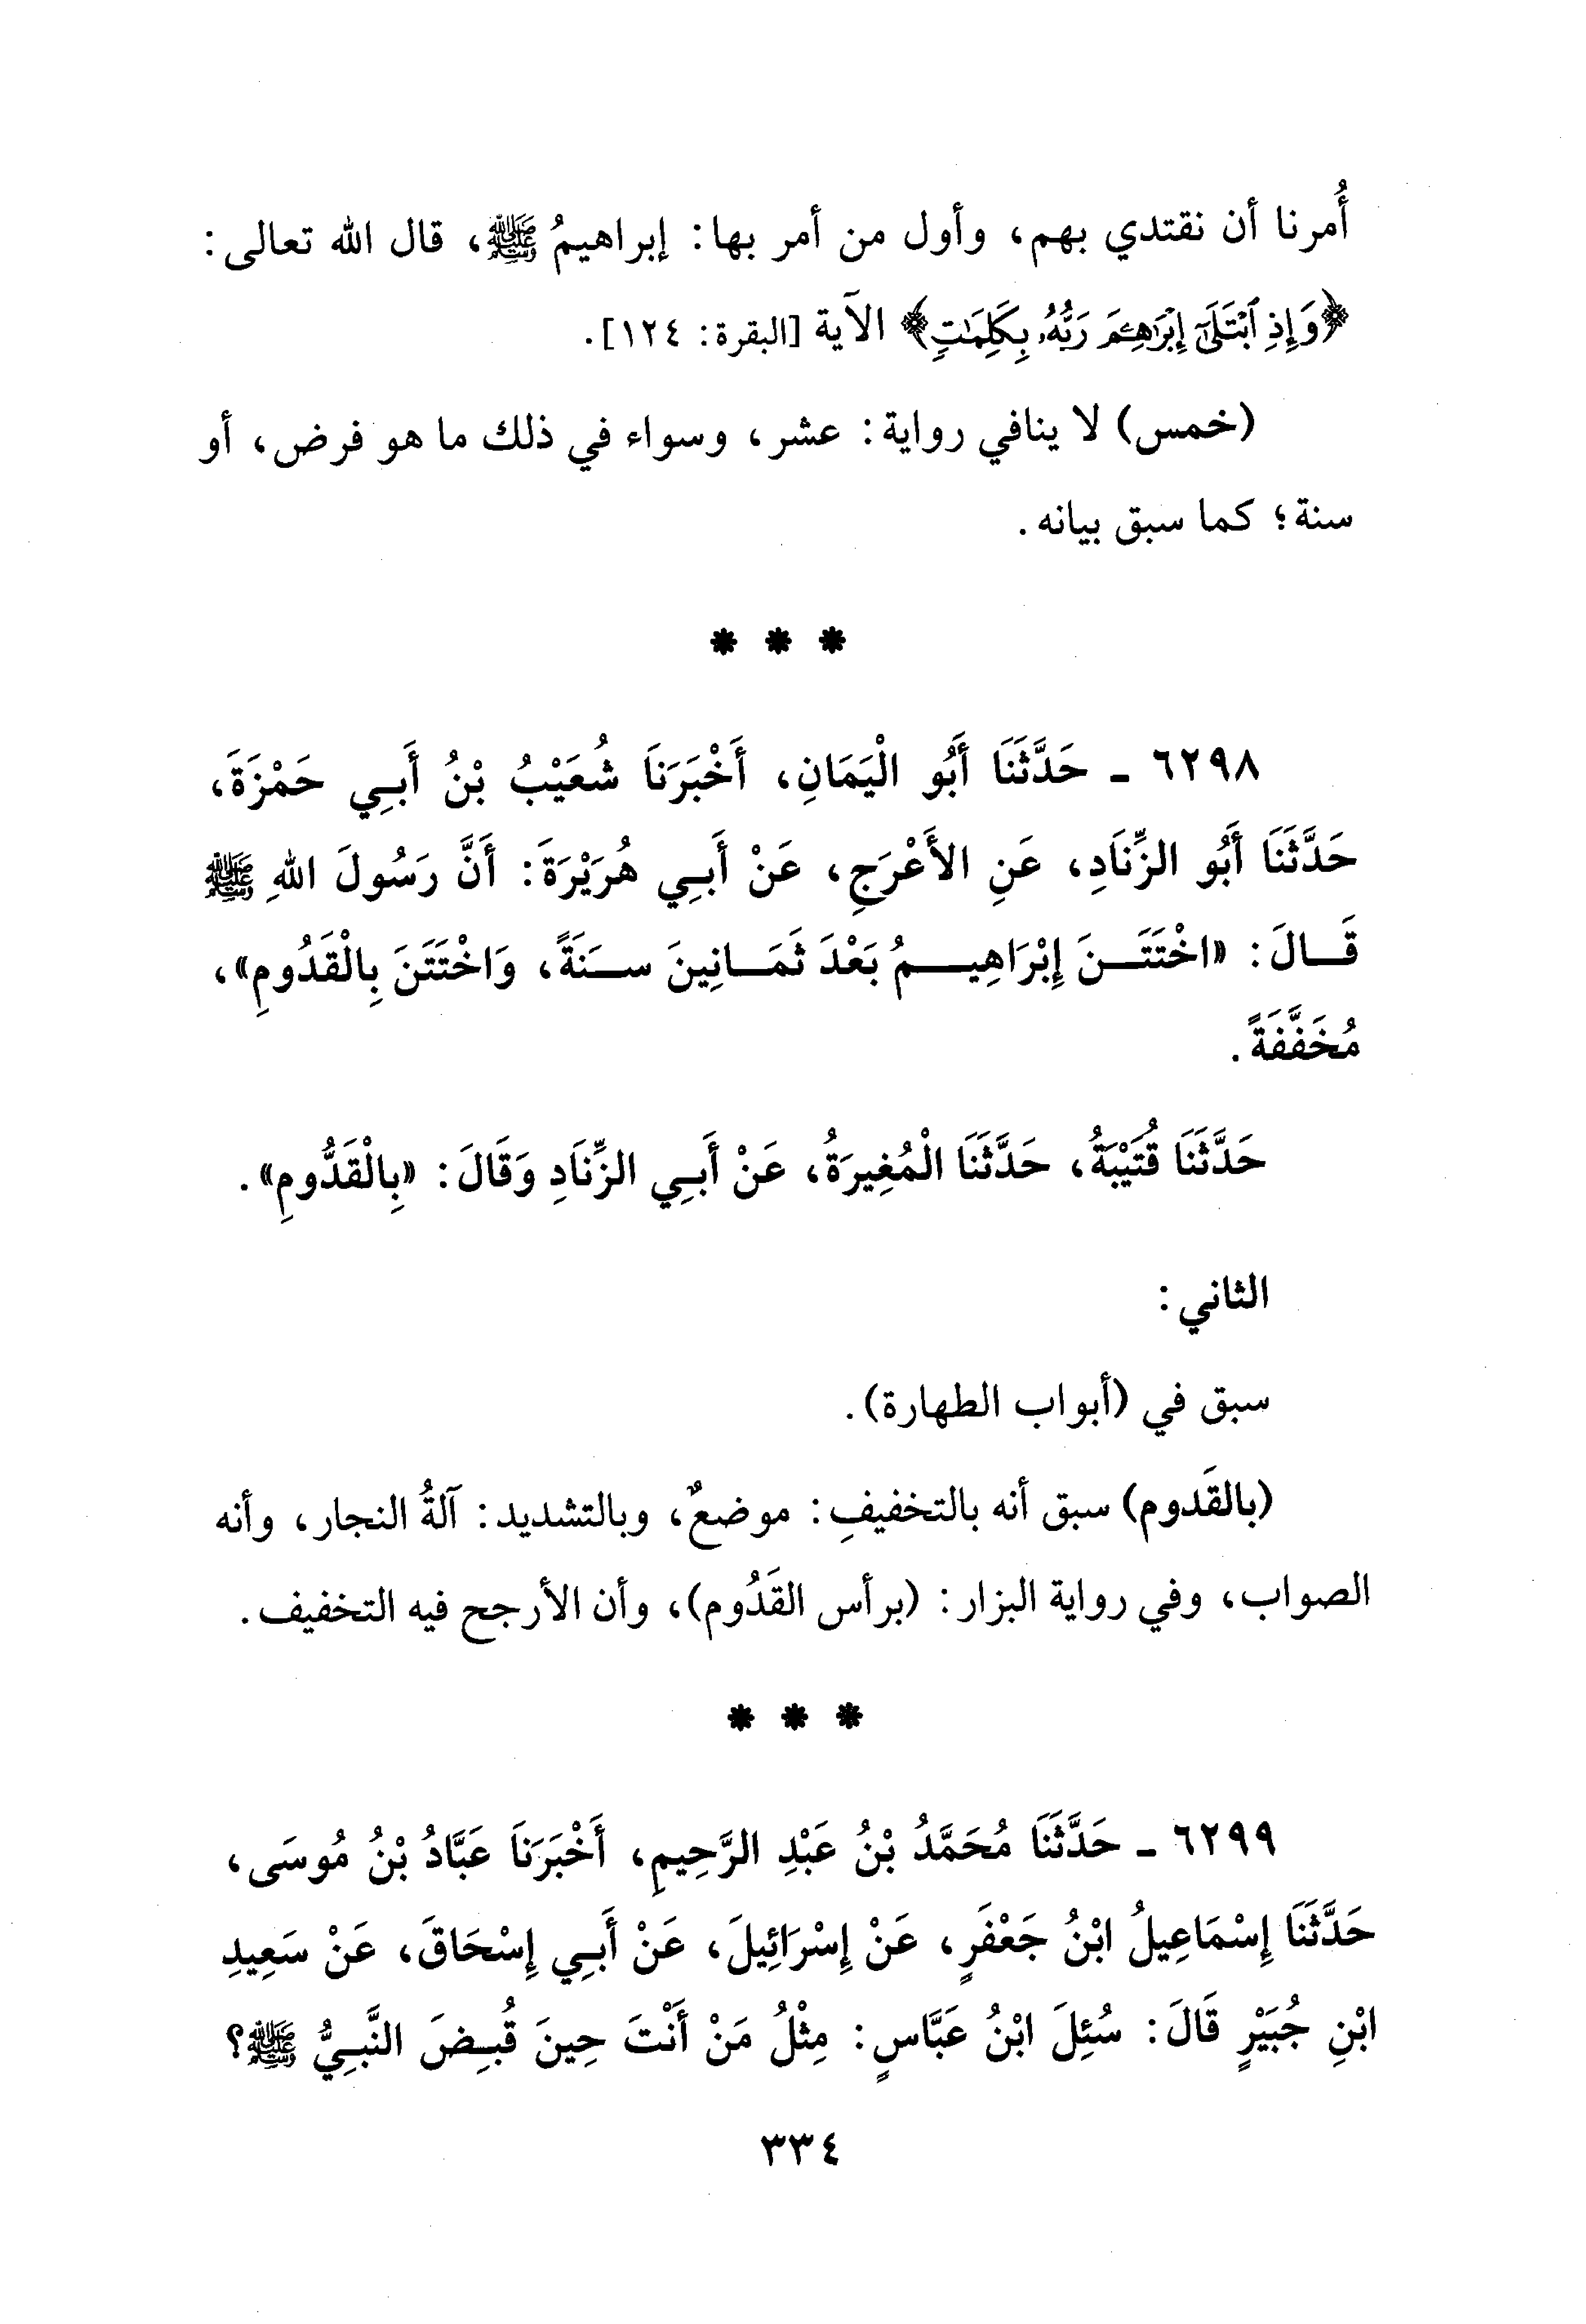 أُمرنا أن نقتدي بهم، وأول من أمر بها: إبراهيمُ ﷺ، قال الله تعالى:
﴿وَإِذِ ٱبْتَلَىٰٓ إِبْرَٰهِـۧمَ رَبُّهُۥ بِكَلِمَٰتٍ﴾ الآية [البقرة: ١٢٤].
(خمس) لا ينافي رواية: عشر، وسواء في ذلك ما هو فرض، أو
سنة؛ كما سبق بيانه.
* * *
٦٢٩٨ - حَدَّثَنَا أَبُو الْيَمَانِ، أَخْبَرَنَا شُعَيْبُ بْنُ أَبِي حَمْزَةَ،
حَدَّثَنَا أَبُو الزِّنَادِ، عَنِ الأَعْرَجِ، عَنْ أَبِي هُرَيْرَةَ: أَنَّ رَسُولَ اللهِ ﷺ
قَالَ: «اخْتَتَنَ إِبْرَاهِيمُ بَعْدَ ثَمَانِينَ سَنَةً، وَاخْتَتَنَ بِالْقَدُومِ»،
مُخَفَّفَةً.
حَدَّثَنَا قُتَيْبَةُ، حَدَّثَنَا الْمُغِيرَةُ، عَنْ أَبِي الزِّنَادِ وَقَالَ: «بِالْقَدُّومِ».
الثاني:
سبق في (أبواب الطهارة).
(بالقَدوم) سبق أنه بالتخفيفِ: موضعٌ، وبالتشديد: آلةُ النجار، وأنه
الصواب، وفي رواية البزار: (برأس القَدُوم)، وأن الأرجح فيه التخفيف.
* * *
٦٢٩٩ - حَدَّثَنَا مُحَمَّدُ بْنُ عَبْدِ الرَّحِيمِ، أَخْبَرَنَا عَبَّادُ بْنُ مُوسَى،
حَدَّثَنَا إِسْمَاعِيلُ ابْنُ جَعْفَرٍ، عَنْ إِسْرَائِيلَ، عَنْ أَبِي إِسْحَاقَ، عَنْ سَعِيدِ
ابْنِ جُبَيْرٍ قَالَ: سُئِلَ ابْنُ عَبَّاسٍ: مِثْلُ مَنْ أَنْتَ حِينَ قُبِضَ النَّبِيُّ ﷺ؟
٣٣٤